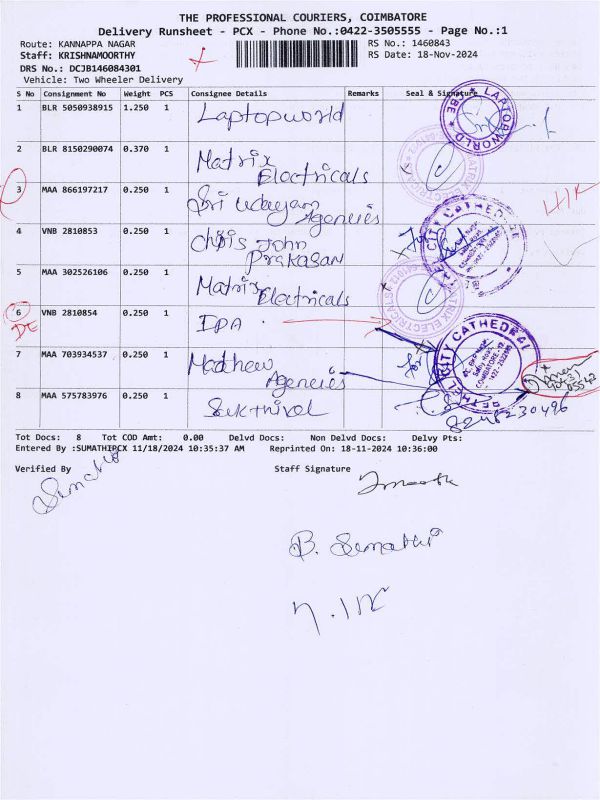 THE PROFESSIONAL COURIERS, COIMBATORE
Delivery Runsheet - PCX - Phone No.:0422-3505555 - Page No.:1
Route: KANNAPPA NAGAR RS No.: 1460843
Staff: KRISHNAMOORTHY RS Date: 18-Nov-2024
DRS No.: DCJB146084301
Vehicle: Two Wheeler Delivery
S No Consignment No Weight PCS Consignee Details Remarks Seal & Signature
1 BLR 5050938915 1.250 1 Laptopworld
LAPTOP WORLD
2 BLR 8150290074 0.370 1 Matrix
Electricals
3 MAA 866197217 0.250 1 Sri Udayam
Agencies
4 VNB 2810853 0.250 1 Chris John
Prakasan
CITY CATHEDRAL
5 MAA 302526106 0.250 1 Matrix
Electricals
MATRIX ELECTRICALS
6 VNB 2810854 0.250 1 IPA
DE
BETHEL CITY CATHEDRAL
7 MAA 703934537 0.250 1 Madhew
Agencies
8 MAA 575783976 0.250 1 Sakthivel
8248230496
Tot Docs: 8 Tot COD Amt: 0.00 Delvd Docs: Non Delvd Docs: Delvy Pts:
Entered By :SUMATHIPCX 11/18/2024 10:35:37 AM Reprinted On: 18-11-2024 10:36:00
Verified By Staff Signature
Sumathi
B. Sumathi